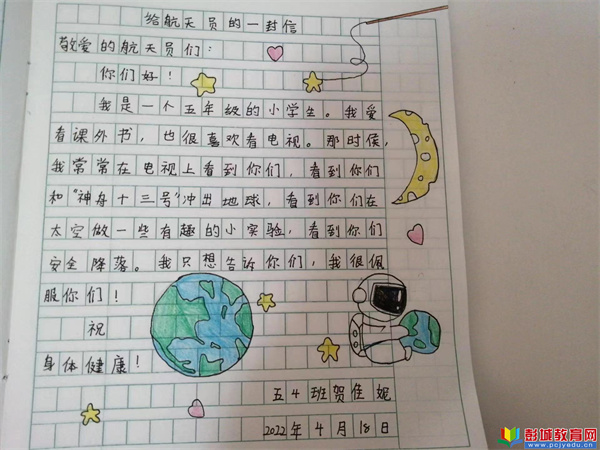 给航天员的一封信
敬爱的航天员们：
你们好！
我是一个五年级的小学生。我爱
看课外书，也很喜欢看电视。那时候，
我常常在电视上看到你们，看到你们
和“神舟十三号”冲出地球，看到你们在
太空做一些有趣的小实验，看到你们
安全降落。我只想告诉你们，我很佩
服你们！
祝
身体健康！
五4班贺佳妮
2022年4月18日
彭城教育网
www.pcjyedu.cn